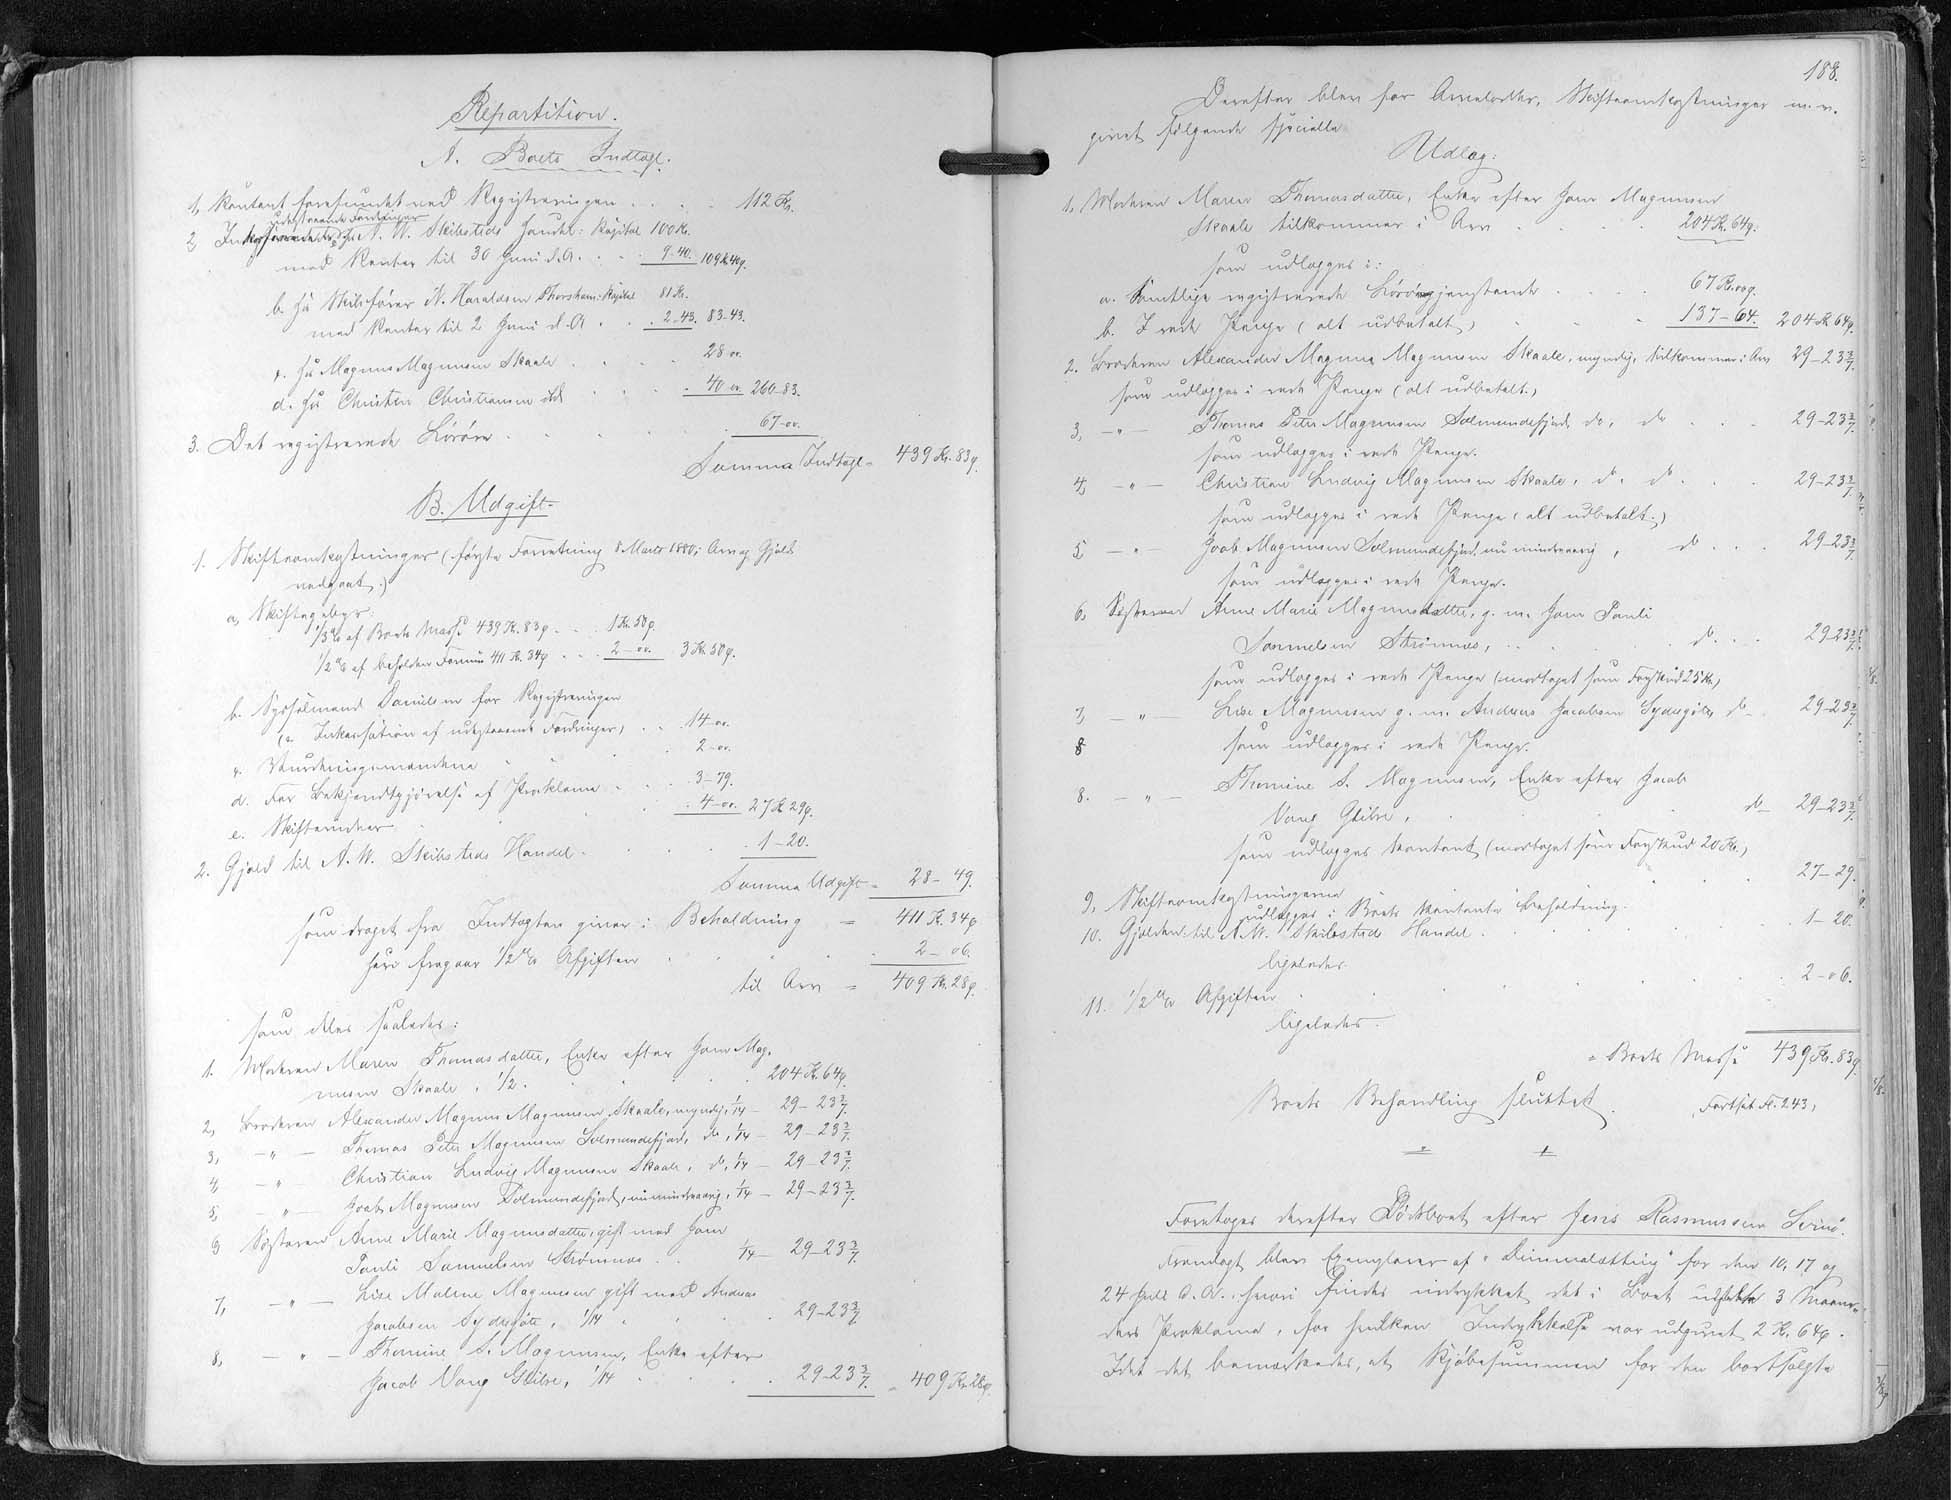 Repartition.
A. Boets Indtægt.
1, Kontant forefundet ved Registreringen . . . . 112 Kr.
udestaaende Fordringer
2, a. hos A. W. Skibsteds Handel: Kapital 100 Kr.
med Renter til 30 Juni d. A. . . . 9-40. 109 Kr. 40 ø.
b. hos Skibsfører N. Haraldsen Thorshavn: Kapital 81 Kr.
med Renter til 2 Juni d. A. . . . 2-43. 83-43.
c. hos Magnus Magnussen Skaale . . . . 28 "
d. hos Christen Christiansen ibd . . . . 40 " 260-83.
3. Det registrerede Løsøre . . . . . . 67-"
Summa Indtægt = 439 Kr. 83 ø.
B. Udgift.
1. Skifteomkostninger (første Forretning 8 Marts 1880; Arv og Gjæld
vedgaaet.)
a, Skiftegebyr:
1/3 % af Boets Masse 439 Kr. 83 ø . . . 1 Kr. 50 ø.
1/2 % af beholden Formue 411 Kr. 34 ø . . . 2-" 3 Kr. 50 ø.
b. Sysselmand Danielsen for Registreringen
(& Inkassation af udestaaende Fordringer) . . 14-"
c. Vurderingsmændene . . . . 2-"
d. For Bekjendtgjørelse af Proklama . . . . 3-79.
e. Skiftevidner . . . . 4-" 27 Kr. 29 ø.
2. Gjæld til A. W. Skibsteds Handel . . . . . 1-20.
Summa Udgift = 28-49.
som draget fra Indtægten giver i Beholdning = 411 Kr. 34 ø
herfra fragaar 1/2 % Afgiften . . . . 2-06.
til Arv = 409 Kr. 28 ø.
som deles saaledes:
1. Moderen Maren Thomasdatter, Enke efter Joen Mag-
nussen Skaale, 1/2 . . . . . . 204 Kr. 64 ø.
2, Broderen Alexander Magnus Magnussen Skaale, myndig, 1/14 - 29-23 3/7.
3, - " - Thomas Peter Magnussen Solmundefjord, do, 1/14 - 29-23 3/7.
4, - " - Christian Ludvig Magnussen Skaale, do, 1/14 - 29-23 3/7.
5, - " - Joab Magnussen Solmundefjord, nu mindreaarig, 1/14 - 29-23 3/7.
6, Søsteren Anne Marie Magnusdatter, gift med Joen
Pauli Samuelsen Strømnæs . . 1/14 - 29-23 3/7.
7, - " - Lise Malene Magnussen gift med Andreas
Jacobsen Sydregøte, 1/14 . . . . 29-23 3/7.
8, - " - Thomine S. Magnussen, Enke efter
Jacob Vang Glibre, 1/14 . . . . 29-23 3/7. = 409 Kr. 28 ø.
188.
Derefter blev for Arvelodder, Skifteomkostninger m. v.
givet følgende specielle
Udlæg:
1, Moderen Maren Thomasdatter, Enke efter Joen Magnussen
Skaale tilkommer i Arv . . . . . 204 Kr. 64 ø.
som udlægges i:
a. Samtlige registrerede Løsøregjenstande . . . . 67 Kr. 00 ø.
b. I rede Penge (alt udbetalt) . . . . 137-64. 204 Kr. 64 ø.
2. Broderen Alexander Magnus Magnussen Skaale, myndig, tilkommer i Arv 29-23 3/7.
som udlægges i rede Penge (alt udbetalt.)
3, - " - Thomas Peter Magnussen Solmundefjord, do, do . . . 29-23 3/7.
som udlægges i rede Penge.
4, - " - Christian Ludvig Magnussen Skaale, do, do . . . 29-23 3/7.
som udlægges i rede Penge (alt udbetalt.)
5, - " - Joab Magnussen Solmundefjord, nu mindreaarig, do . . . 29-23 3/7.
som udlægges i rede Penge.
6, Søsteren Anne Marie Magnusdatter, g. m. Joen Pauli
Samuelsen Strømnæs, . . . . . do . . . 29-23 3/7.
som udlægges i rede Penge (modtaget som Forskud 25 Kr.)
7, - " - Lise Magnussen g. m. Andreas Jacobsen Sydregøte, do . 29-23 3/7.
8 som udlægges i rede Penge.
8. - " - Thomine S. Magnussen, Enke efter Jacob
Vang Glibre, . . . . . do - 29-23 3/7.
som udlægges kontant (modtaget som Forskud 20 Kr.)
9, Skifteomkostningerne . . . . 27-29.
udlægges i Boets kontante Beholdning.
10. Gjælden til A. W. Skibsteds Handel . . . . . . 1-20.
ligeledes.
11. 1/2 % Afgiften . . . . . . 2-06.
ligeledes.
= Boets Masse 439 Kr. 83 ø.
Boets Behandling sluttet. (Fortsat Fl. 243)
Foretoges derefter Dødsboet efter Jens Rasmussen Svinø.
Fremlagt blev Exemplarer af "Dimmalætting" for den 10, 17 og
24 Juli d. A., hvori findes indrykket det i Boet udstedte 3 Maane-
ders Proklama, for hvilken Indrykkelse var udgivet 2 Kr. 64 ø.
Idet det bemærkedes, at Kjøbesummen for den bortsolgte